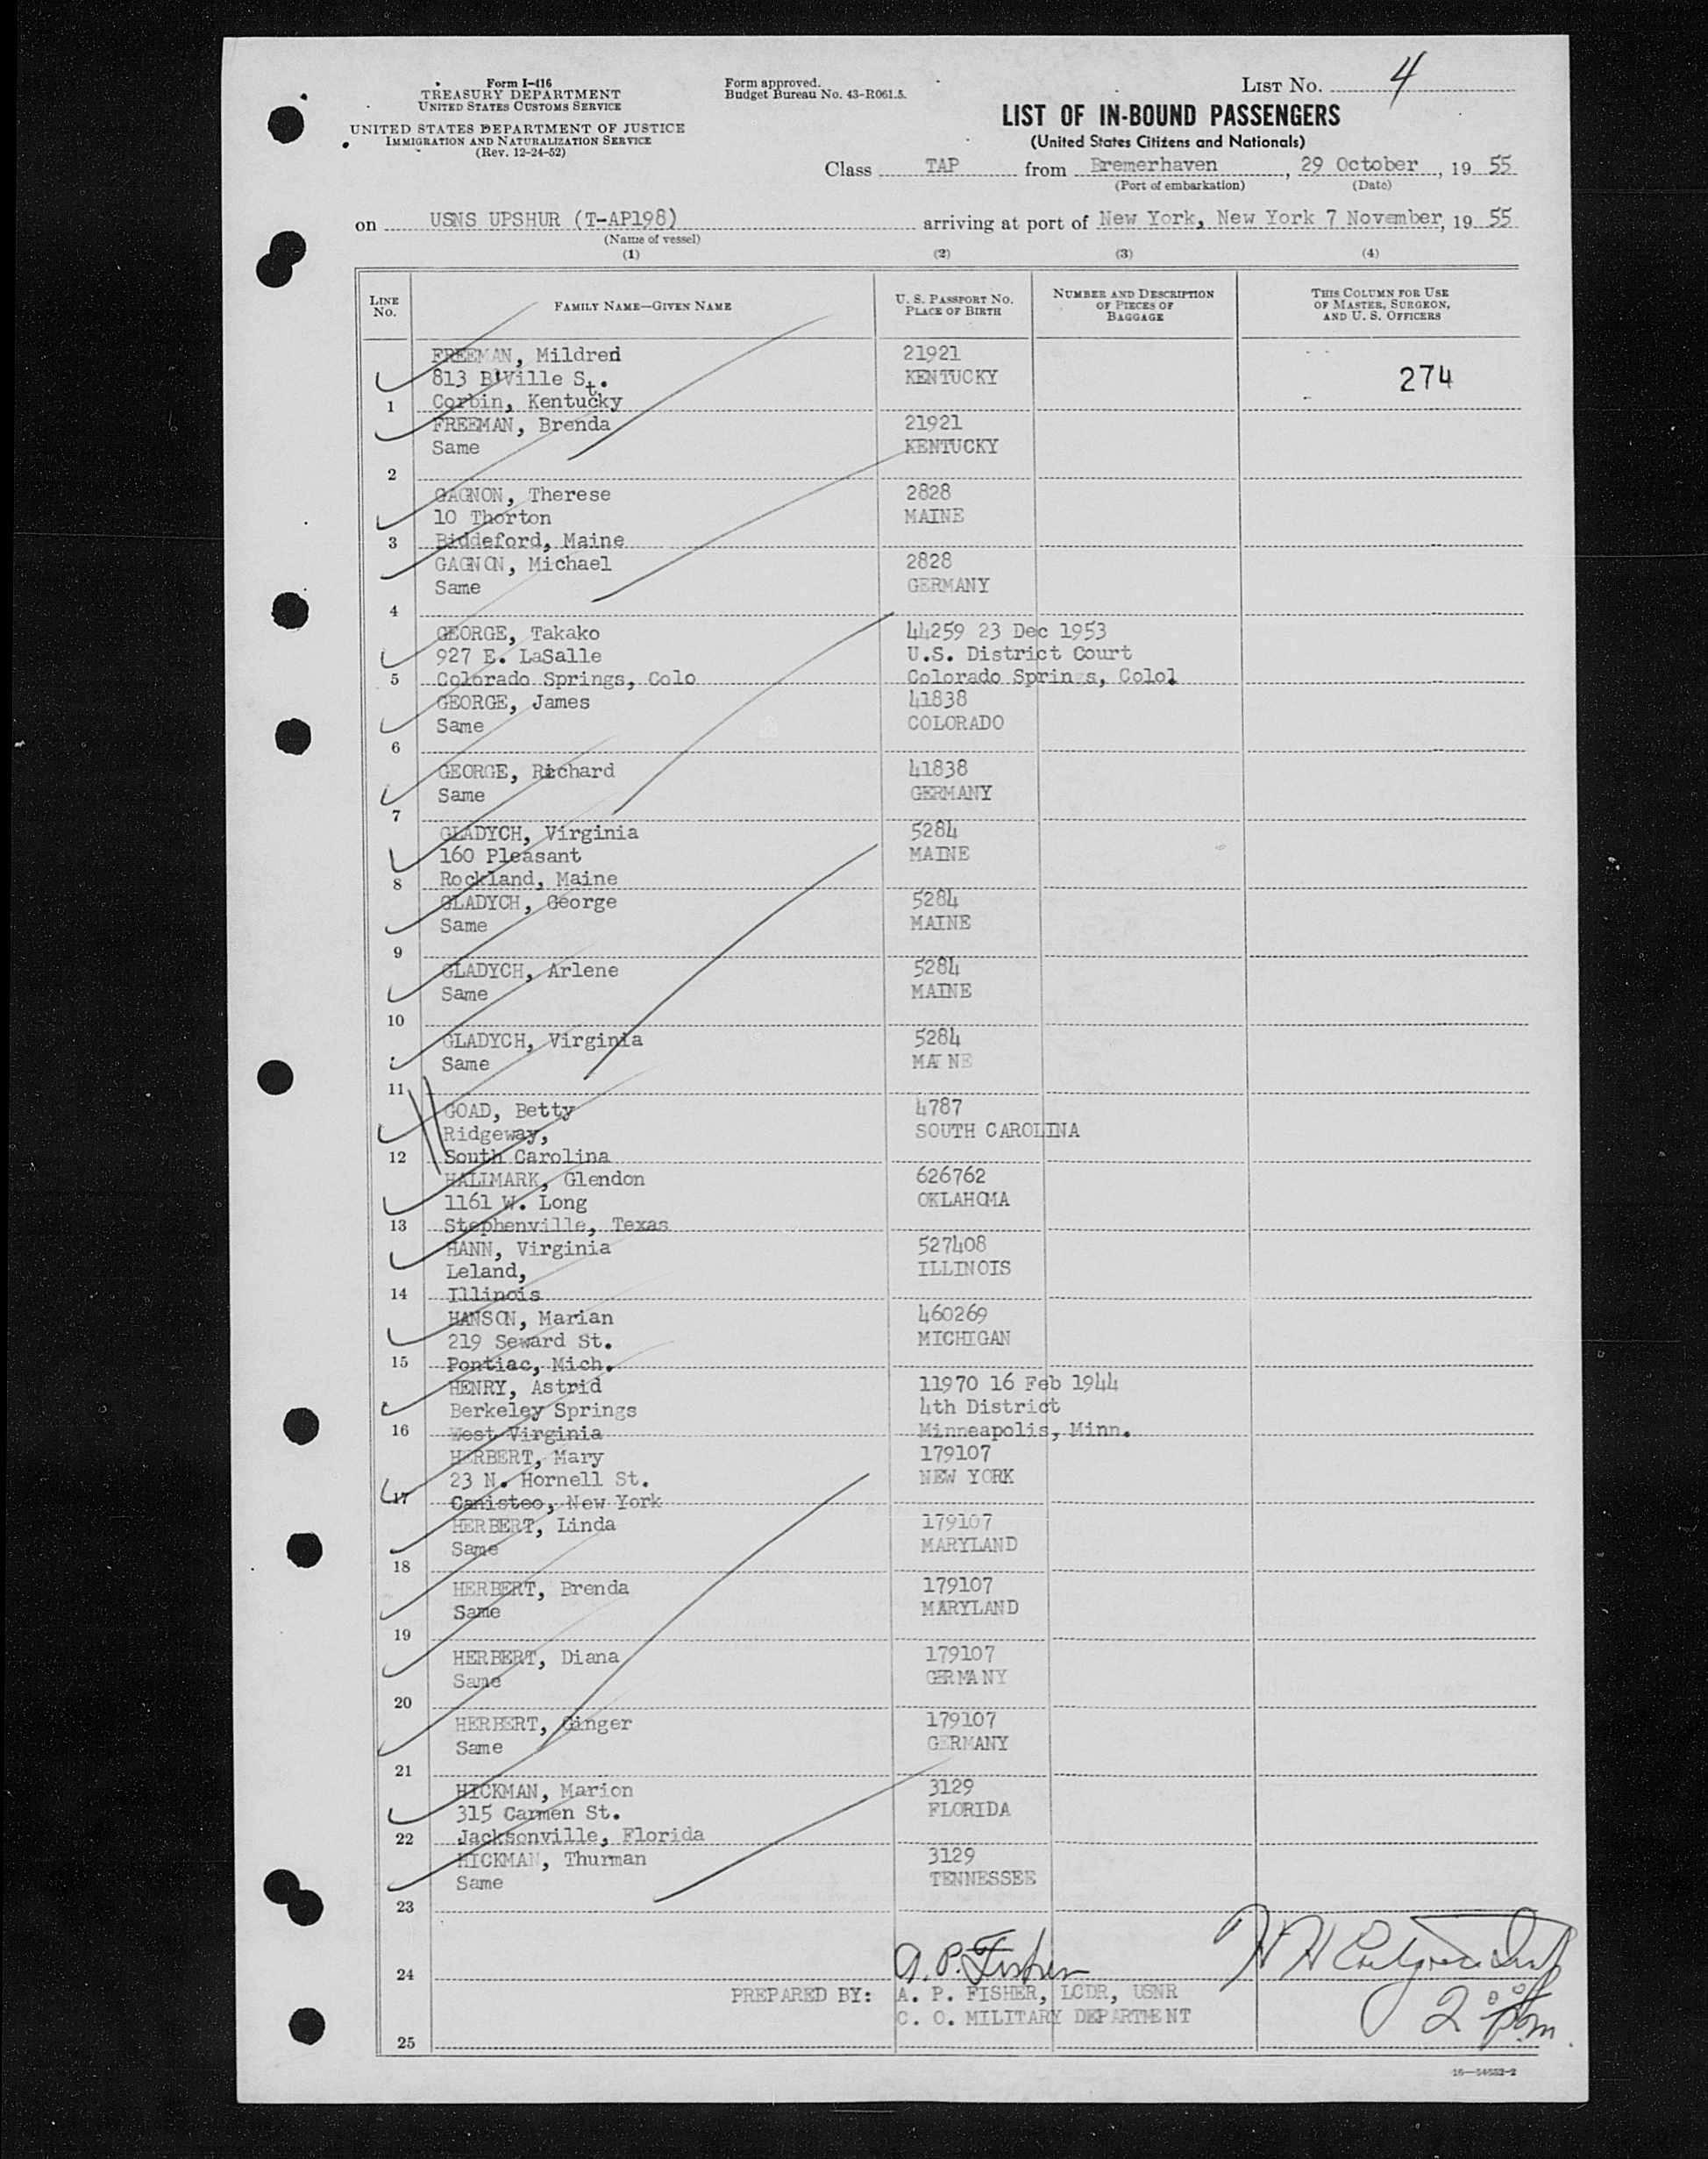 Form I-416
TREASURY DEPARTMENT
UNITED STATES CUSTOMS SERVICE
UNITED STATES DEPARTMENT OF JUSTICE
IMMIGRATION AND NATURALIZATION SERVICE
(Rev. 12-24-52)
Form approved.
Budget Bureau No. 43-R061.5.
LIST NO. 4
LIST OF IN-BOUND PASSENGERS
(United States Citizens and Nationals)
Class TAP from Bremerhaven, 29 October, 1955
(Port of embarkation) (Date)
on USNS UPSHUR (T-AP198) arriving at port of New York, New York 7 November, 1955
(Name of vessel)
(1) (2) (3) (4)
LINE NO.
FAMILY NAME—GIVEN NAME
U. S. PASSPORT NO.
PLACE OF BIRTH
NUMBER AND DESCRIPTION
OF PIECES OF
BAGGAGE
THIS COLUMN FOR USE
OF MASTER, SURGEON,
AND U. S. OFFICERS
FREEMAN, Mildred 21921
813 B'Ville St. KENTUCKY 274
1 Corbin, Kentucky
FREEMAN, Brenda 21921
Same KENTUCKY
2
GAGNON, Therese 2828
10 Thorton MAINE
3 Biddeford, Maine
GAGNON, Michael 2828
Same GERMANY
4
GEORGE, Takako 44259 23 Dec 1953
927 E. LaSalle U.S. District Court
5 Colorado Springs, Colo Colorado Springs, Colol
GEORGE, James 41838
Same COLORADO
6
GEORGE, Richard 41838
Same GERMANY
7
GLADYCH, Virginia 5284
160 Pleasant MAINE
8 Rockland, Maine
GLADYCH, George 5284
Same MAINE
9
GLADYCH, Arlene 5284
Same MAINE
10
GLADYCH, Virginia 5284
Same MAINE
11
GOAD, Betty 4787
Ridgeway, SOUTH CAROLINA
12 South Carolina
HALLMARK, Glendon 626762
1161 W. Long OKLAHOMA
13 Stephenville, Texas
HANN, Virginia 527408
Leland, ILLINOIS
14 Illinois
HANSON, Marian 460269
219 Seward St. MICHIGAN
15 Pontiac, Mich.
HENRY, Astrid 11970 16 Feb 1944
Berkeley Springs 4th District
16 West Virginia Minneapolis, Minn.
HERBERT, Mary 179107
23 N. Hornell St. NEW YORK
17 Canisteo, New York
HERBERT, Linda 179107
Same MARYLAND
18
HERBERT, Brenda 179107
Same MARYLAND
19
HERBERT, Diana 179107
Same GERMANY
20
HERBERT, Ginger 179107
Same GERMANY
21
HICKMAN, Marion 3129
315 Carmen St. FLORIDA
22 Jacksonville, Florida
HICKMAN, Thurman 3129
Same TENNESSEE
23
A. P. Fisher
24
PREPARED BY: A. P. FISHER, LCDR, USNR
C. O. MILITARY DEPARTMENT
2 00 pm.
25
16—54652-2